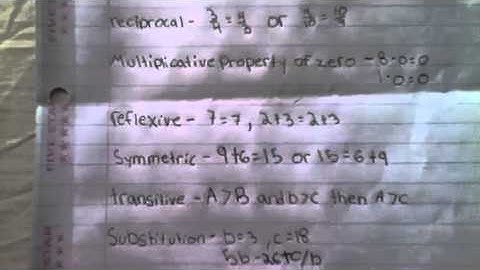 reciprocal - 3/4 = 4/3 or
Multiplicative property of zero - 8·0=0
1·0=0
reflexive - 7=7, 2+3=2+3
Symmetric - 9+6=15 or 15=6+9
transitive - A>B and b>c then A>c
Substitution - b=3, c=18
5b-26+c/b
FIVE STAR
FIVE STAR